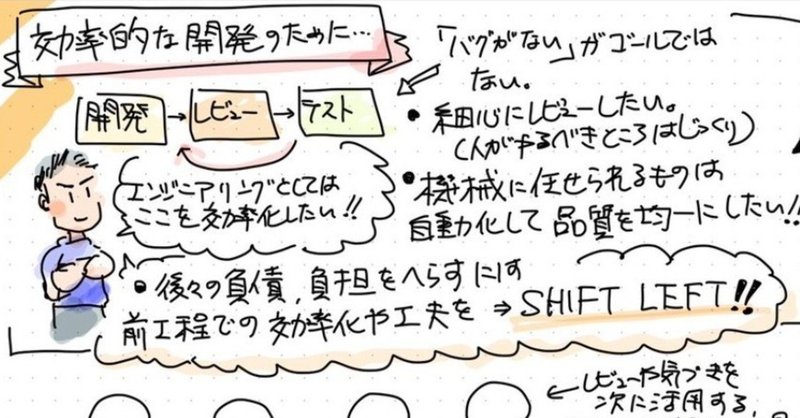 効率的な開発のために…
開発→レビュー→テスト
エンジニアリングとしては
ここを効率化したい!!
「バグがない」がゴールでは
ない。
・細心にレビューしたい。
(人がやるべきところはじっくり)
・機械に任せられるものは
自動化して品質を均一にしたい!!
・後々の負債、負担をへらすにす
前工程での効率化や工夫を ⇒ SHIFT LEFT!!
←レビューや気づきを
次に活用する。